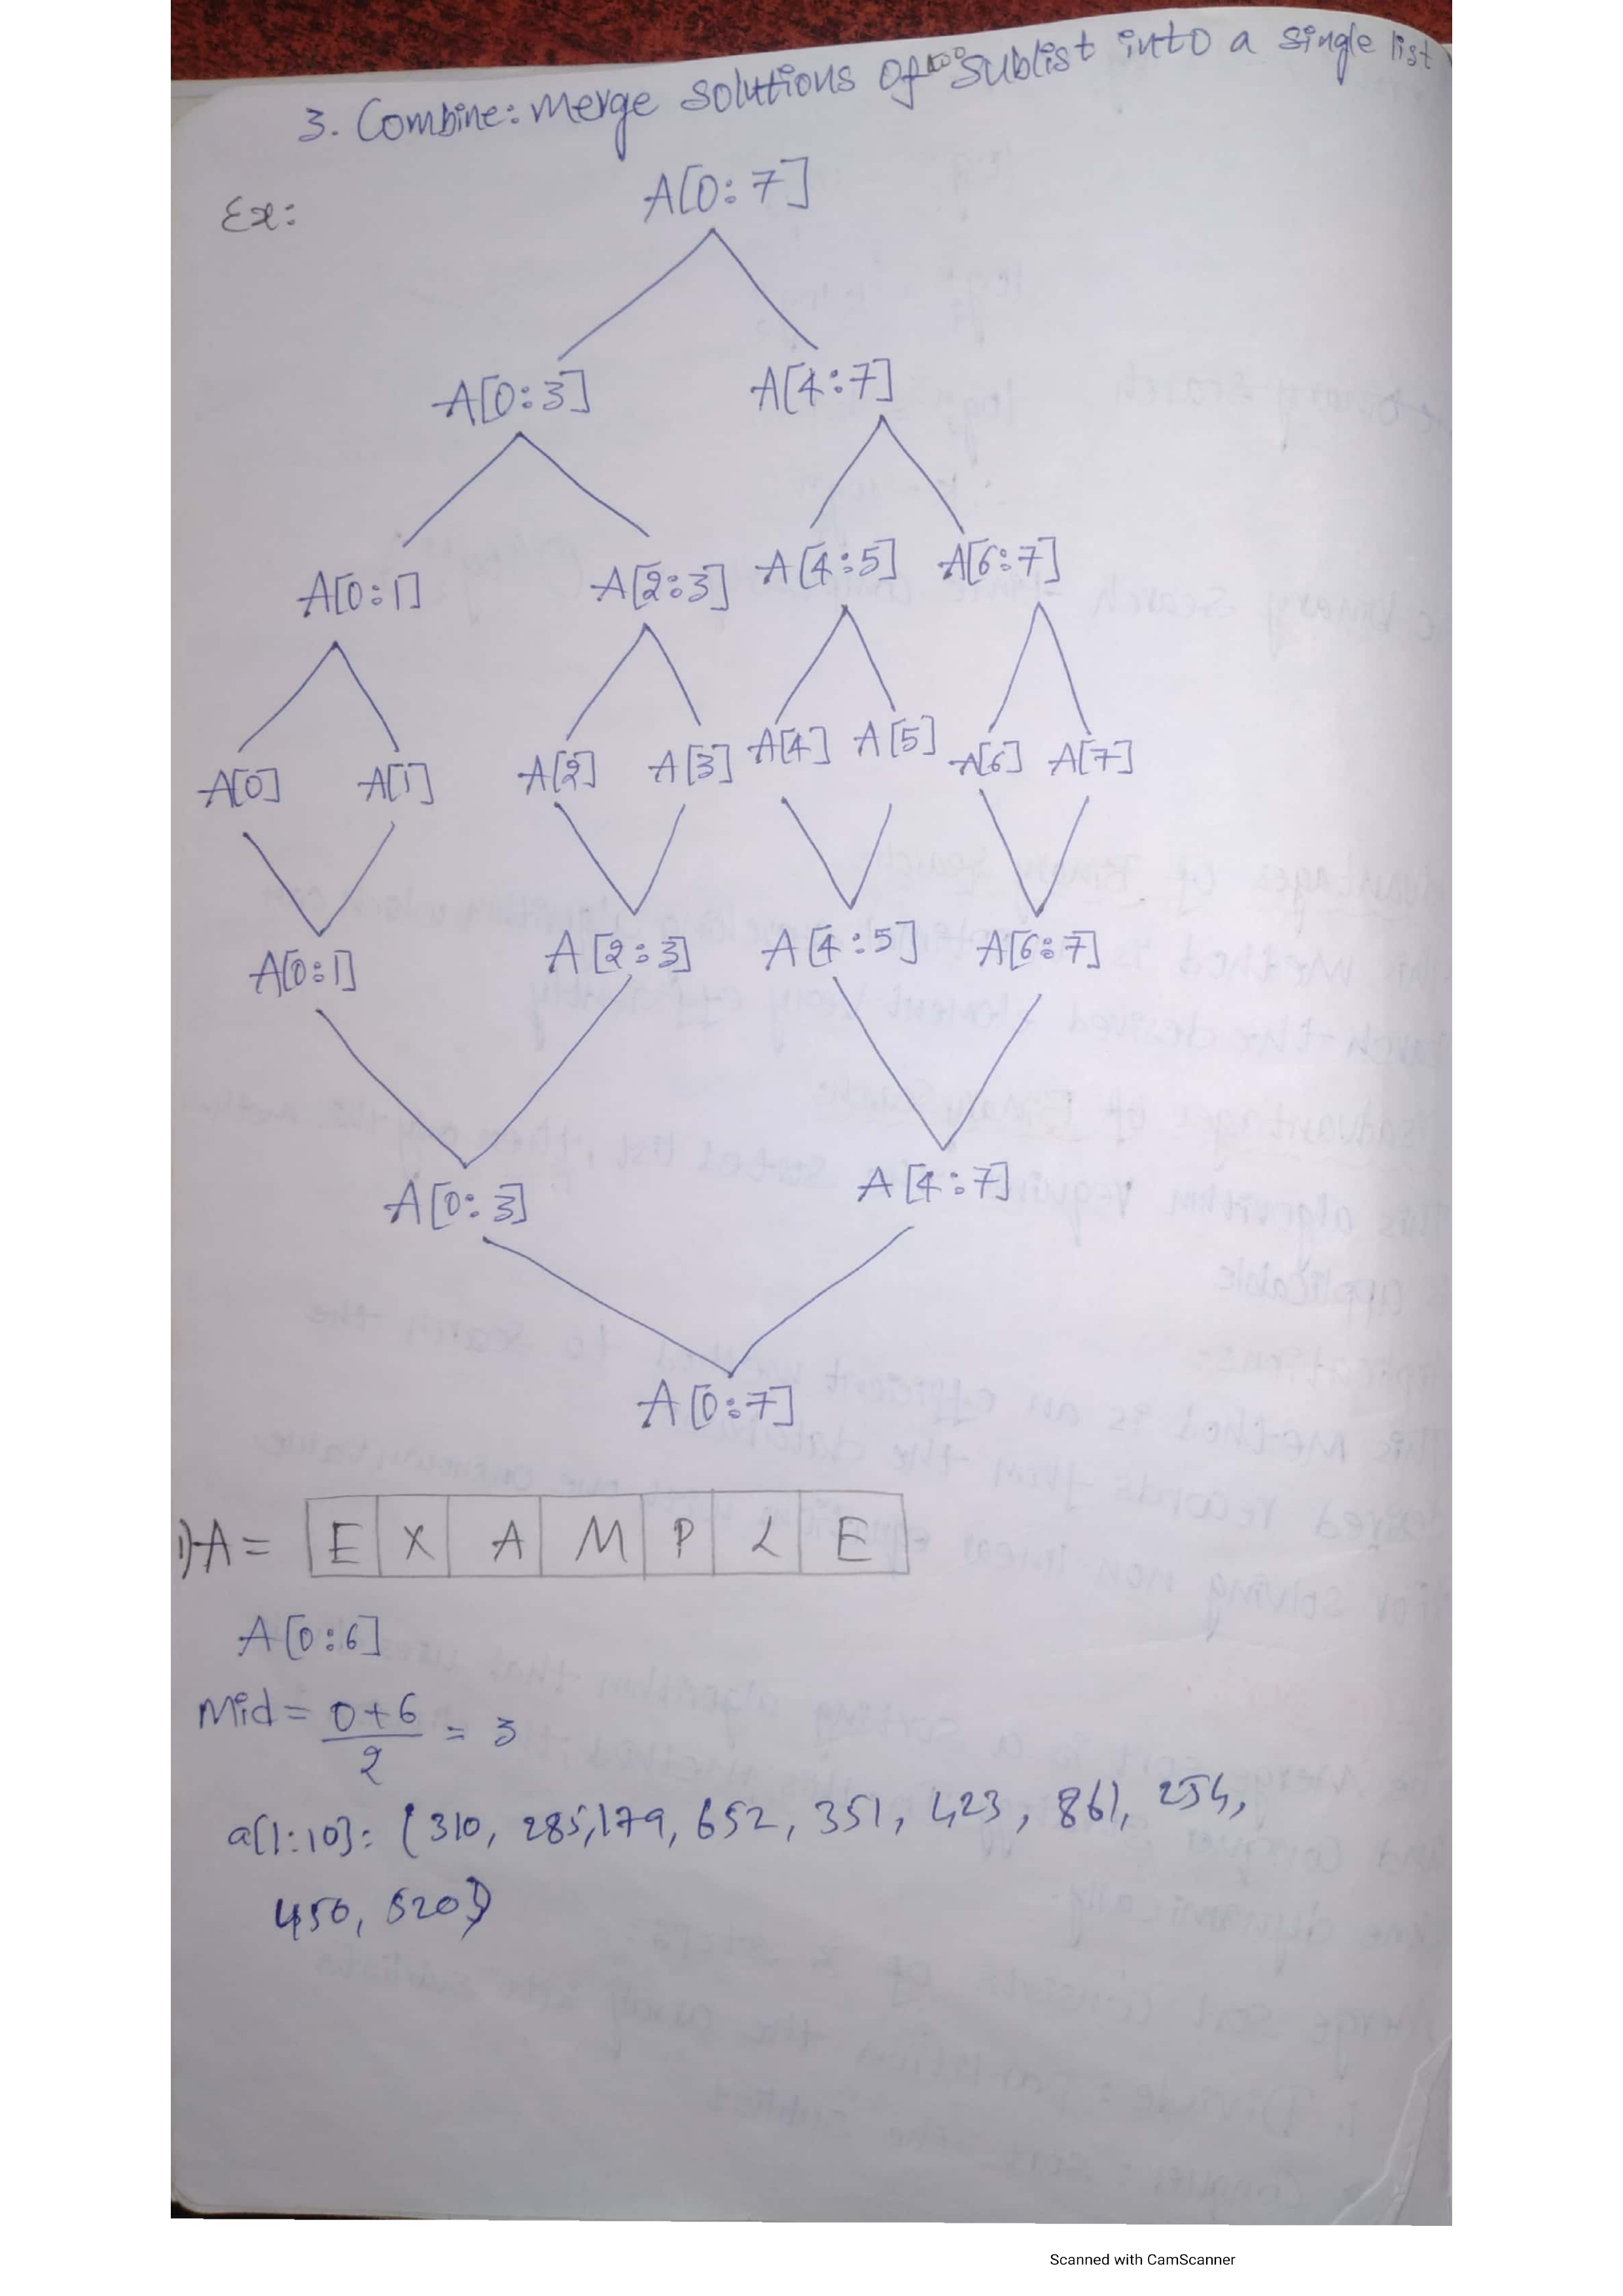 3. Combine: merge solutions of two sublist into a single list
Ex:
A[0:7]
A[0:3] A[4:7]
A[0:1] A[2:3] A[4:5] A[6:7]
A[0] A[1] A[2] A[3] A[4] A[5] A[6] A[7]
A[0:1] A[2:3] A[4:5] A[6:7]
A[0:3] A[4:7]
A[0:7]
1) A = E X A M P L E
A[0:6]
Mid = 0+6/2 = 3
a[1:10]: (310, 285, 179, 652, 351, 423, 861, 254,
450, 520)
Scanned with CamScanner